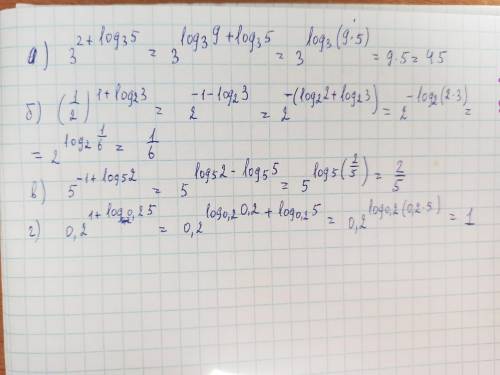 а) 3^(2+log₃5) = 3^(log₃9+log₃5) = 3^(log₃(9·5)) = 9·5 = 45
б) (1/2)^(1+log₂3) = 2^(-1-log₂3) = 2^(-(log₂2+log₂3)) = 2^(-log₂(2·3)) =
= 2^(log₂ 1/6) = 1/6
в) 5^(-1+log₅2) = 5^(log₅2-log₅5) = 5^(log₅(2/5)) = 2/5
г) 0,2^(1+log₀,₂5) = 0,2^(log₀,₂0,2+log₀,₂5) = 0,2^(log₀,₂(0,2·5)) = 1